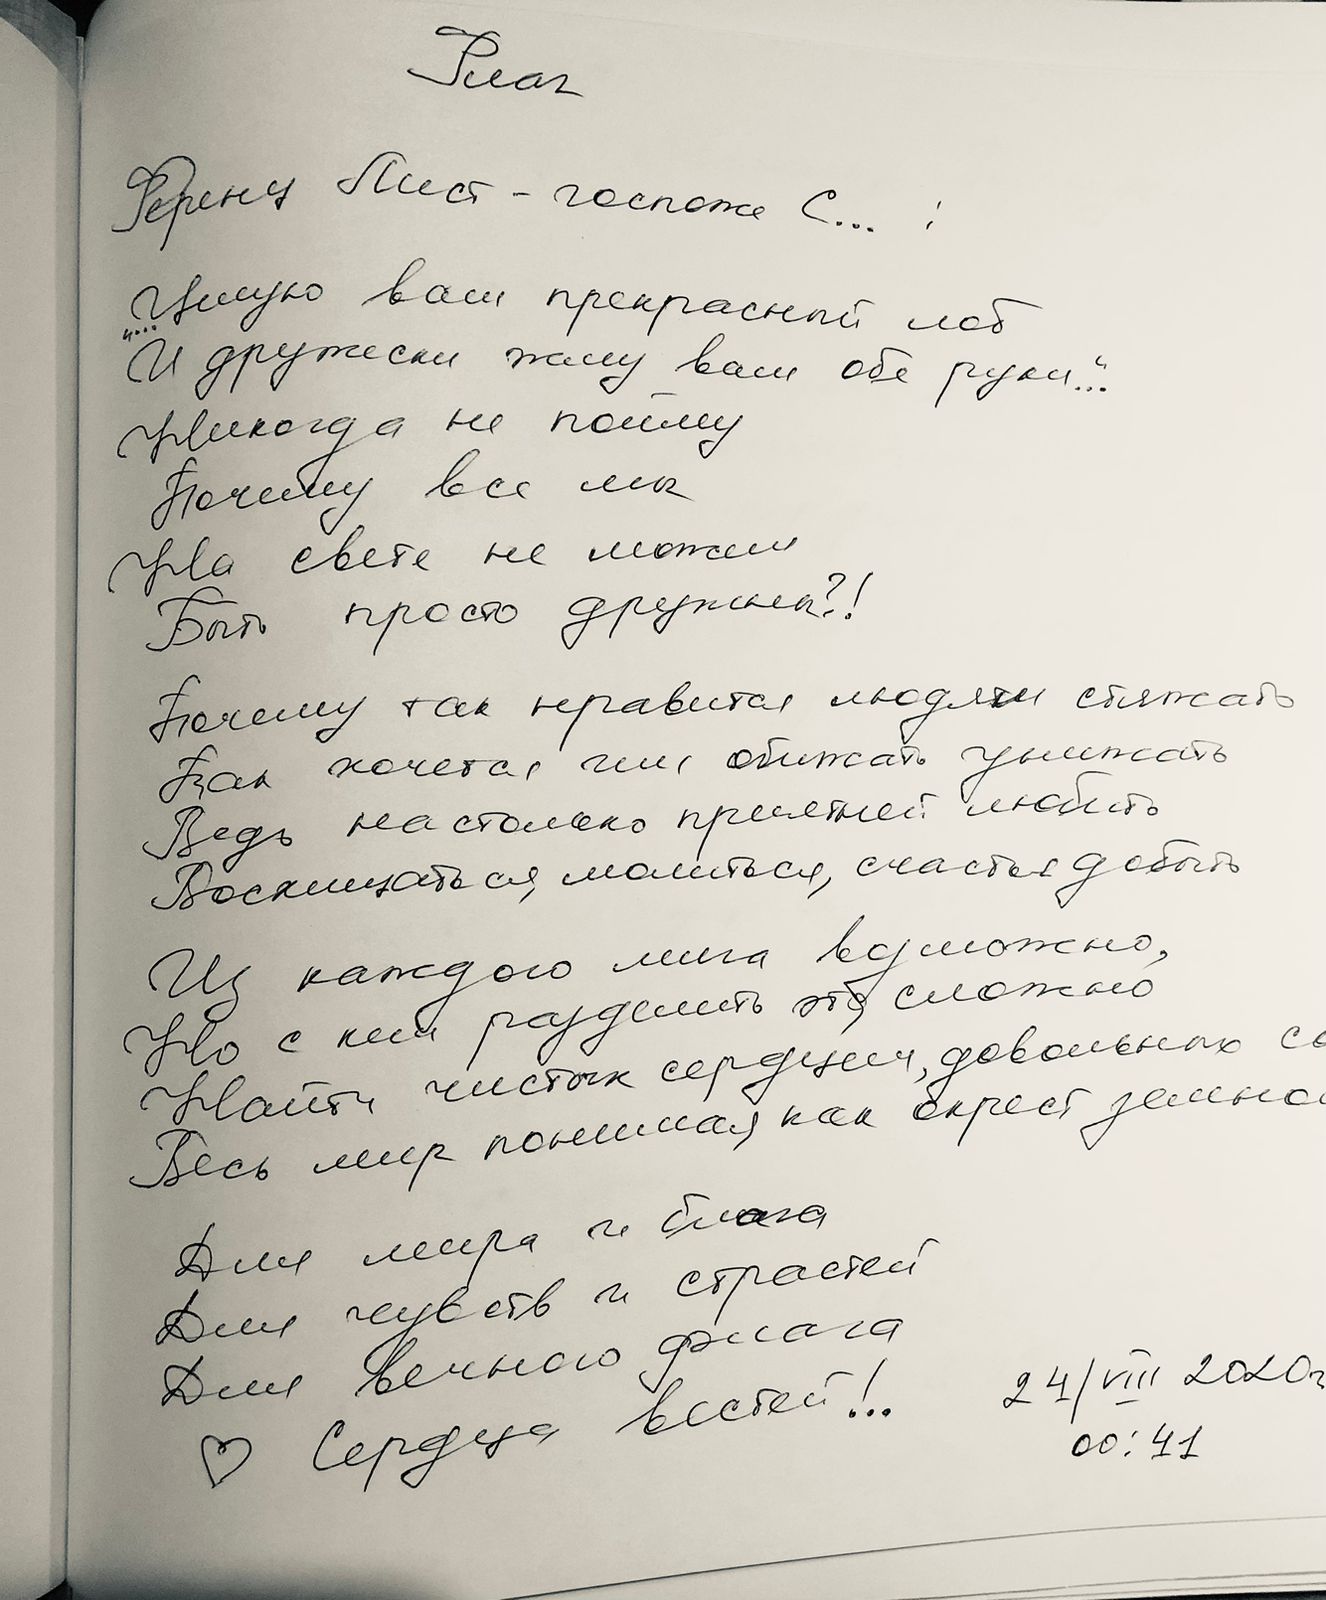 Флаг
Ференц Лист - госпоже С... :
"...Целую ваш прекрасный лоб
И дружески жму вам обе руки..."
Никогда не пойму
Почему все мы
На свете не можем
Быть просто дружны?!
Почему так нравится людям стяжать
Как хочется им обижать унижать
Ведь настолько приятней любить
Восхищаться, молиться, счастья добыть
Из каждого мига возможно,
Но с кем разделить это, сложно
Найти чистых сердцем, довольных
Весь мир понимая, как окрест
Для мира и блага
Для чувств и страстей
Для вечного флага
♡ Сердца вестей!..
24/VIII 2020г
00:41